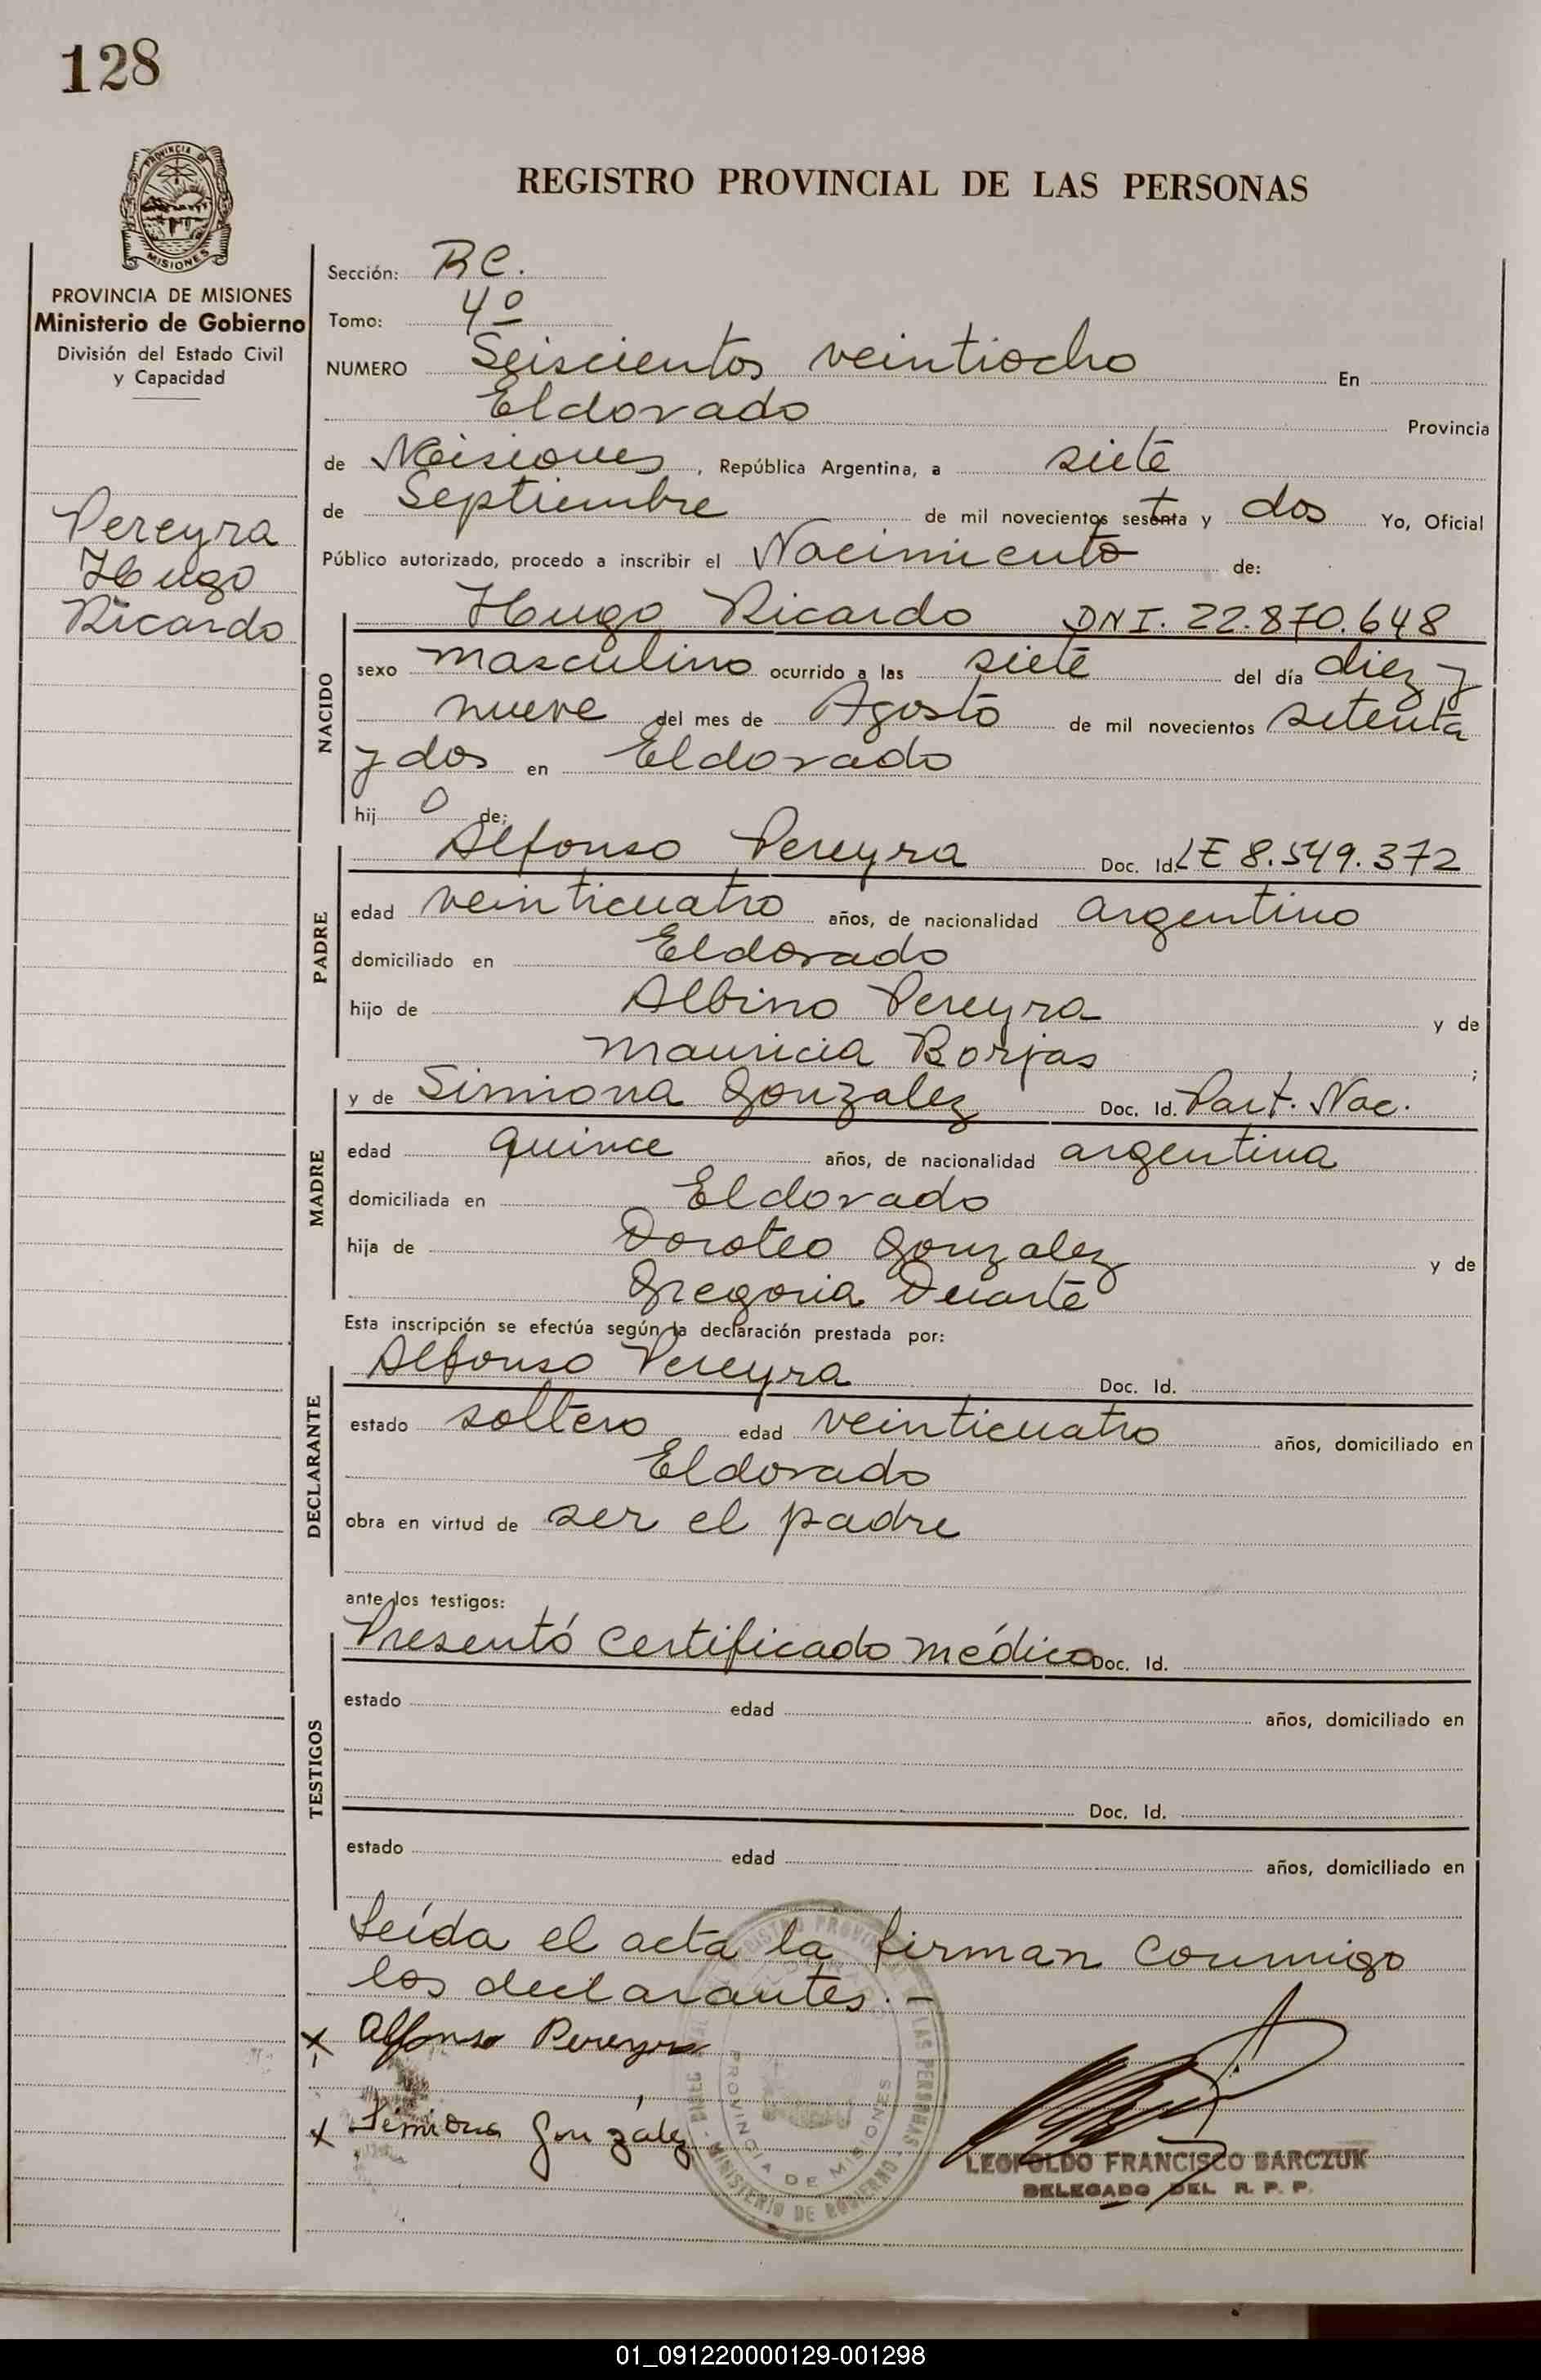 128
PROVINCIA DE
MISIONES
PROVINCIA DE MISIONES
Ministerio de Gobierno
División del Estado Civil
y Capacidad
Pereyra
Hugo
Ricardo
REGISTRO PROVINCIAL DE LAS PERSONAS
Sección: RC.
Tomo: 4º
NUMERO Seiscientos veintiocho En
Eldorado Provincia
de Misiones, República Argentina, a siete
de Septiembre de mil novecientos setenta y dos Yo, Oficial
Público autorizado, procedo a inscribir el Nacimiento de:
NACIDO
Hugo Ricardo DNI. 22.870.648
sexo masculino ocurrido a las siete del día diez y
nueve del mes de Agosto de mil novecientos setenta
y dos en Eldorado
hij o de:
PADRE
Alfonso Pereyra Doc. Id. LE 8.549.372
edad veinticuatro años, de nacionalidad argentino
domiciliado en Eldorado
hijo de Albino Pereyra y de
Mauricia Borjas ;
MADRE
y de Simiona Gonzalez Doc. Id. Part. Nac.
edad quince años, de nacionalidad argentina
domiciliada en Eldorado
hija de Doroteo Gonzalez y de
Gregoria Duarte
Esta inscripción se efectúa según la declaración prestada por:
DECLARANTE
Alfonso Pereyra Doc. Id.
estado soltero edad veinticuatro años, domiciliado en
Eldorado
obra en virtud de ser el padre
ante los testigos:
TESTIGOS
Presentó certificado médico Doc. Id.
estado edad años, domiciliado en
Doc. Id.
estado edad años, domiciliado en
Leída el acta la firman conmigo
los declarantes.-
x Alfonso Pereyra
x Simiona González
PROVINCIA DE MISIONES
MINISTERIO DE GOBIERNO
LEOPOLDO FRANCISCO BARCZUK
DELEGADO DEL R. P. P.
01_091220000129-001298